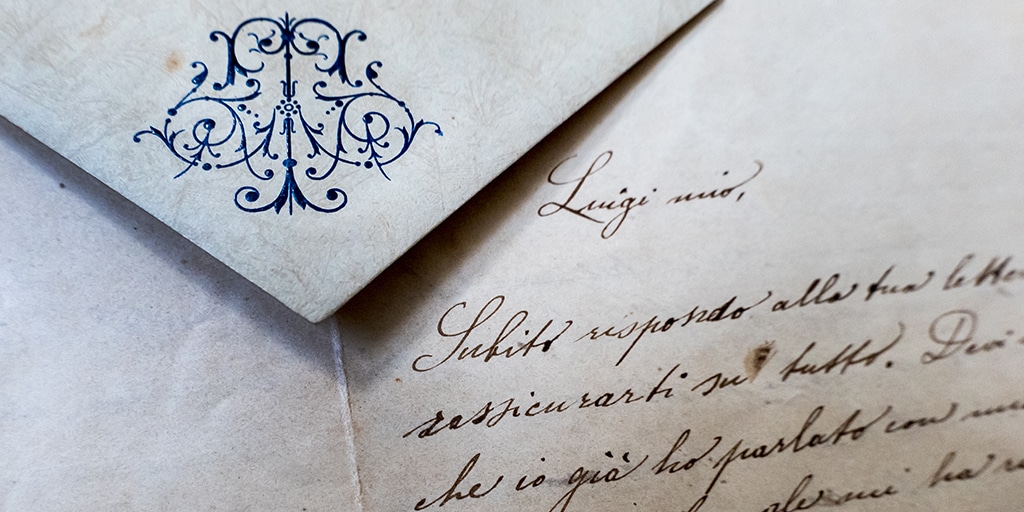 Luigi mio,
Subito rispondo alla tua lette
rassicurarti su tutto. Devi
che io già ho parlato con
ale mi ha